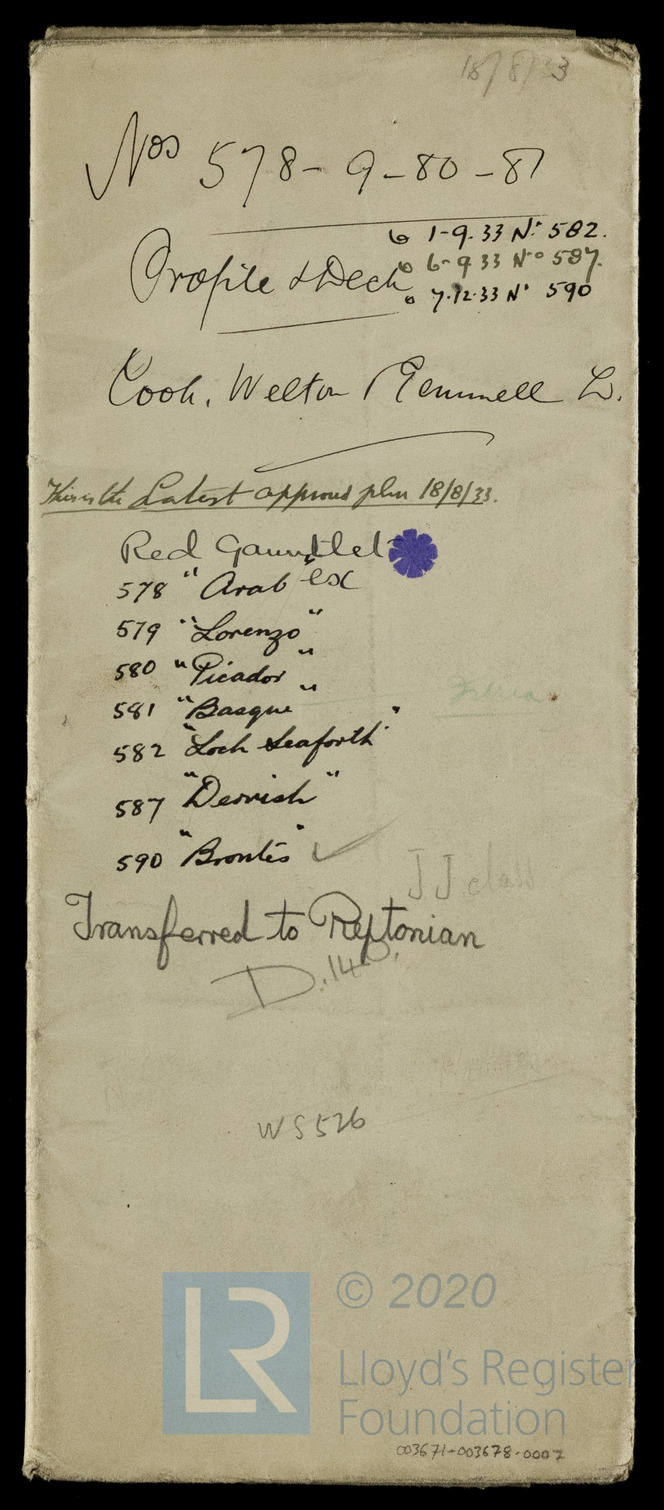 18/8/33
Nos 578-9-80-81
Profile & Deck
6 1-9-33 No 582.
6 6-9 33 No 587.
6 7.12.33 No 590
Cook, Welton & Gemmell Ld.
This is the Latest approved plan 18/8/33.
Red Gauntlet
578 "Arab" ex
579 "Lorenzo"
580 "Picador"
581 "Basque"
582 "Loch Seaforth"
587 "Dervish"
590 "Brontes" ✓
JJ class
Transferred to Reptonian
D.140.
WS526
LR
© 2020
Lloyd's Register
Foundation
003671-003678-0007